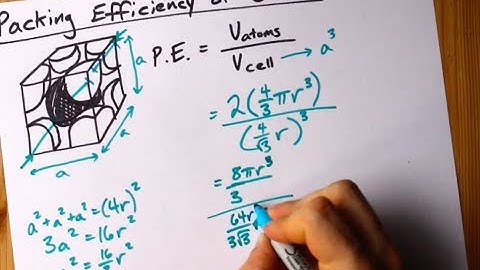 Packing Efficiency of
a
a
a
P.E. = V atoms / V cell → a³
= 2(4/3 πr³) / (4/√3 r)³
= 8πr³/3 / 64r/3√3
a² + a² + a² = (4r)²
3a² = 16r²
a² = 16/3 r²